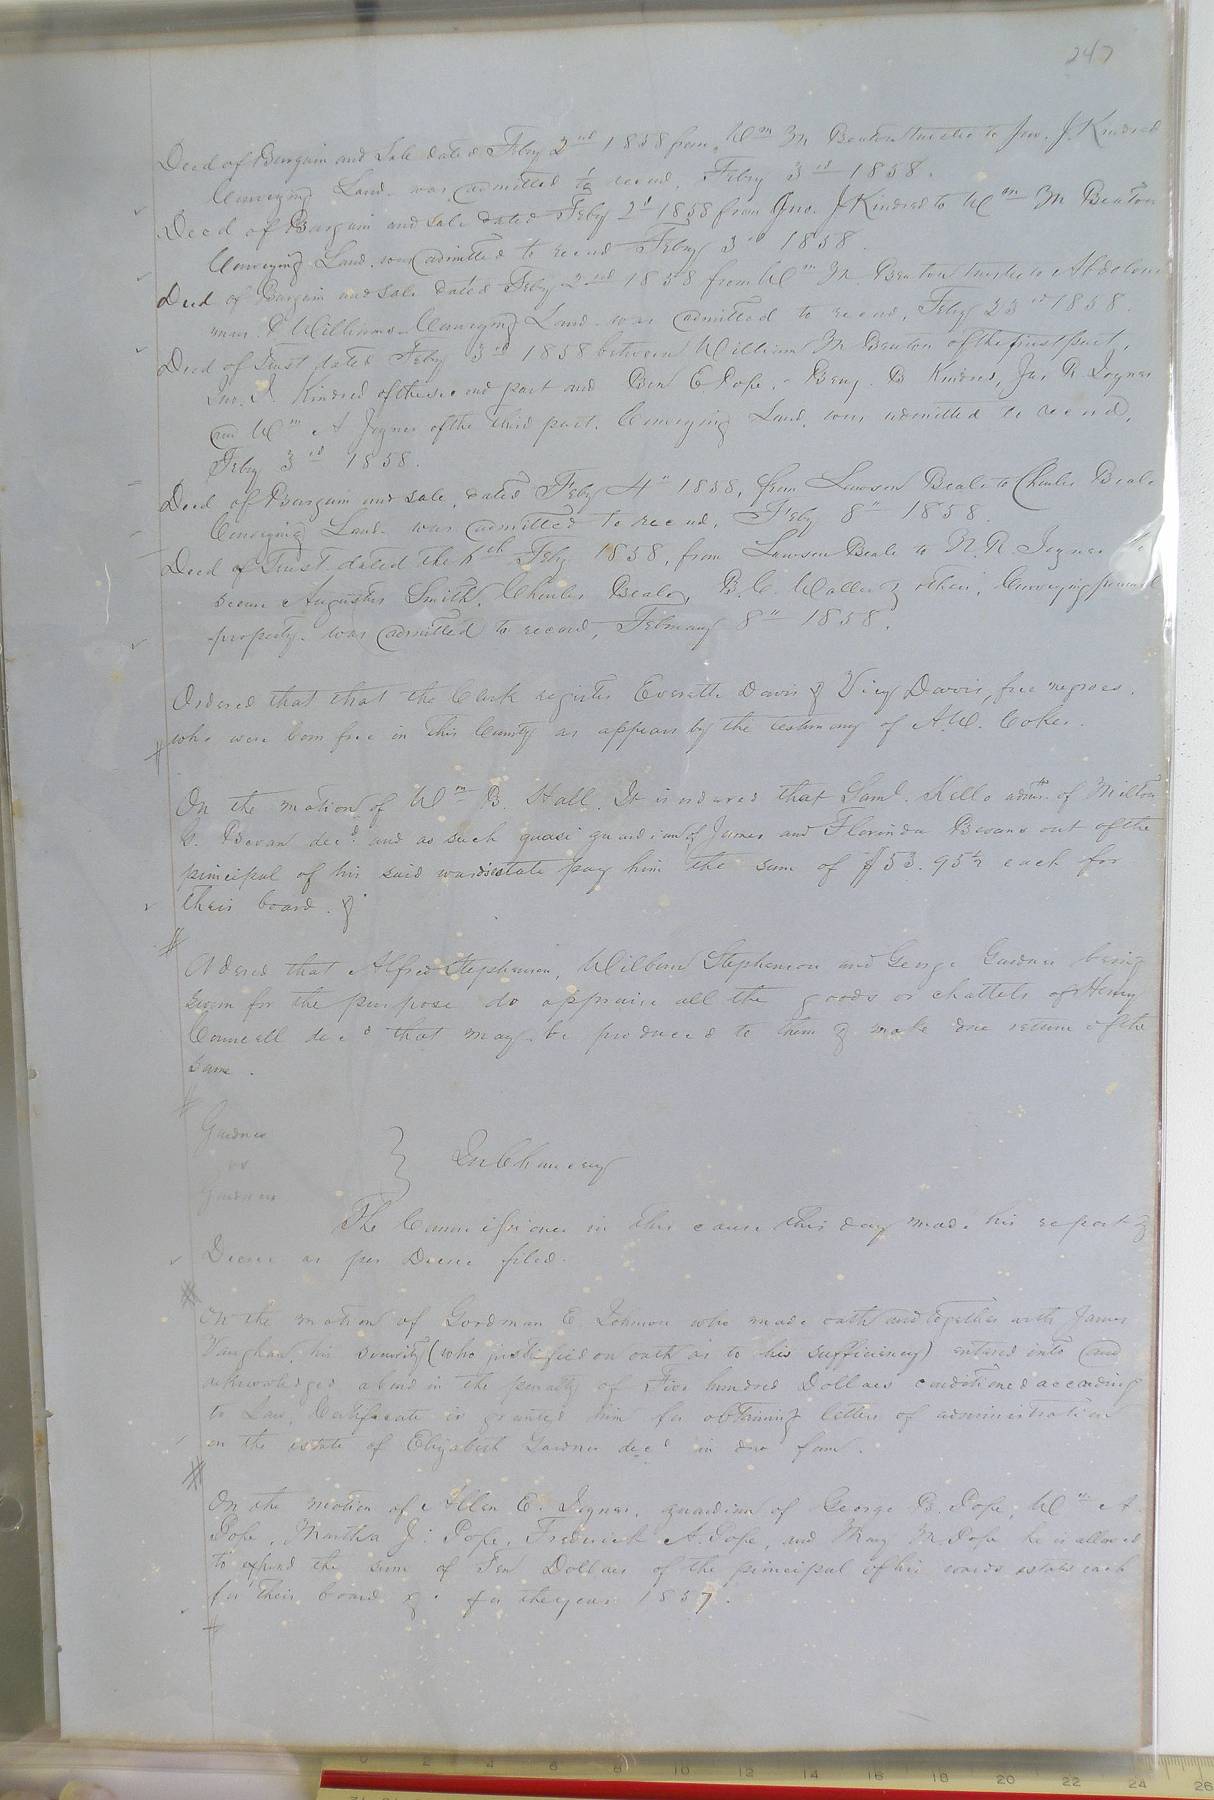 247
Deed of Bargain and Sale dated Feby 2nd 1858 from Wm M Beaton trustee to Jno. J. Kindred
Conveying Land was admitted to record, Feby 3rd 1858.
Deed of Bargain and Sale dated Feby 2d 1858 from Jno. J Kindred to Wm M Beaton
Conveying Land was admitted to record Feby 3rd 1858.
Deed of Bargain and Sale dated Feby 2nd 1858 from Wm M. Beaton trustee to
Williams Conveying Land was admitted to record, Feby 23rd 1858.
Deed of Trust dated Feby 3rd 1858 between William M Beaton of the first part,
Jno. J. Kindred of the second part and Ben E. Pope, Benj. B Kindred, Jas R Joyner
and Wm A Joyner of the third part. Conveying Land, was admitted to record,
Feby 3rd 1858.
Deed of Bargain and Sale, dated Feby 4" 1858, from Lawson Beale to Charles Beale
Conveying Land was admitted to record, Feby 8" 1858.
Deed of Trust dated the Feby 1858, from Lawson Beale to N. R. Joyner to
secure Augustus Smith, Charles Beale, B. C. Waller & others, Conveying personal
property was admitted to record, February 8" 1858.
Ordered that that the Clerk register Everette Davis & Vicy Davis, free negroes,
who were born free in this County as appears by the testimony of A. W. Coker.
On the motion of Wm B. Hall. It is ordered that Saml. Kello admr. of Milton
G. Bevan decd. and as such quasi guardian of James and Florinda Bevans out of the
principal of his said wards estate pay him the sum of $53.95½ each for
their board. &
Ordered that Alfred Stephenson, Wilburn Stephenson and George Gardner being
sworn for the purpose do appraise all the goods or chattels of Henry
Councill decd that may be produced to them & make due return of the
same.
Gardner
vs
Gardner
} In Chancery
The Commissioner in this cause this day made his report &
Decree as per Decree filed.
On the motion of Goodman E. Johnson who made oath and together with James
Vaughan his security (who justified on oath as to his sufficiency) entered into and
acknowledged a bond in the penalty of Five hundred Dollars conditioned according
to Law, Certificate is granted him for obtaining letters of administration
on the estate of Elizabeth Gardner decd in due form.
On the motion of Allen E. Joyner, guardian of George B. Pope, Wm A
Pope, Martha J. Pope, Frederick A. Pope, and Mary M. Pope he is allowed
to expend the sum of Ten Dollars of the principal of his wards estate each
for their board &. for the year 1857.
0 2 4 6 8 10 12 14 16 18 20 22 24 26